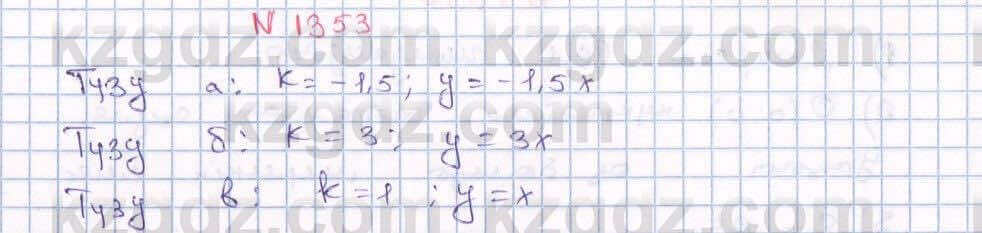 N 1353
Түзу а: k = -1,5; y = -1,5x
Түзу б: k = 3; y = 3x
Түзу в: k = 1; y = x
kzgdz.com kzgdz.com
kzgdz.com
kzgdz.com kzgdz.com